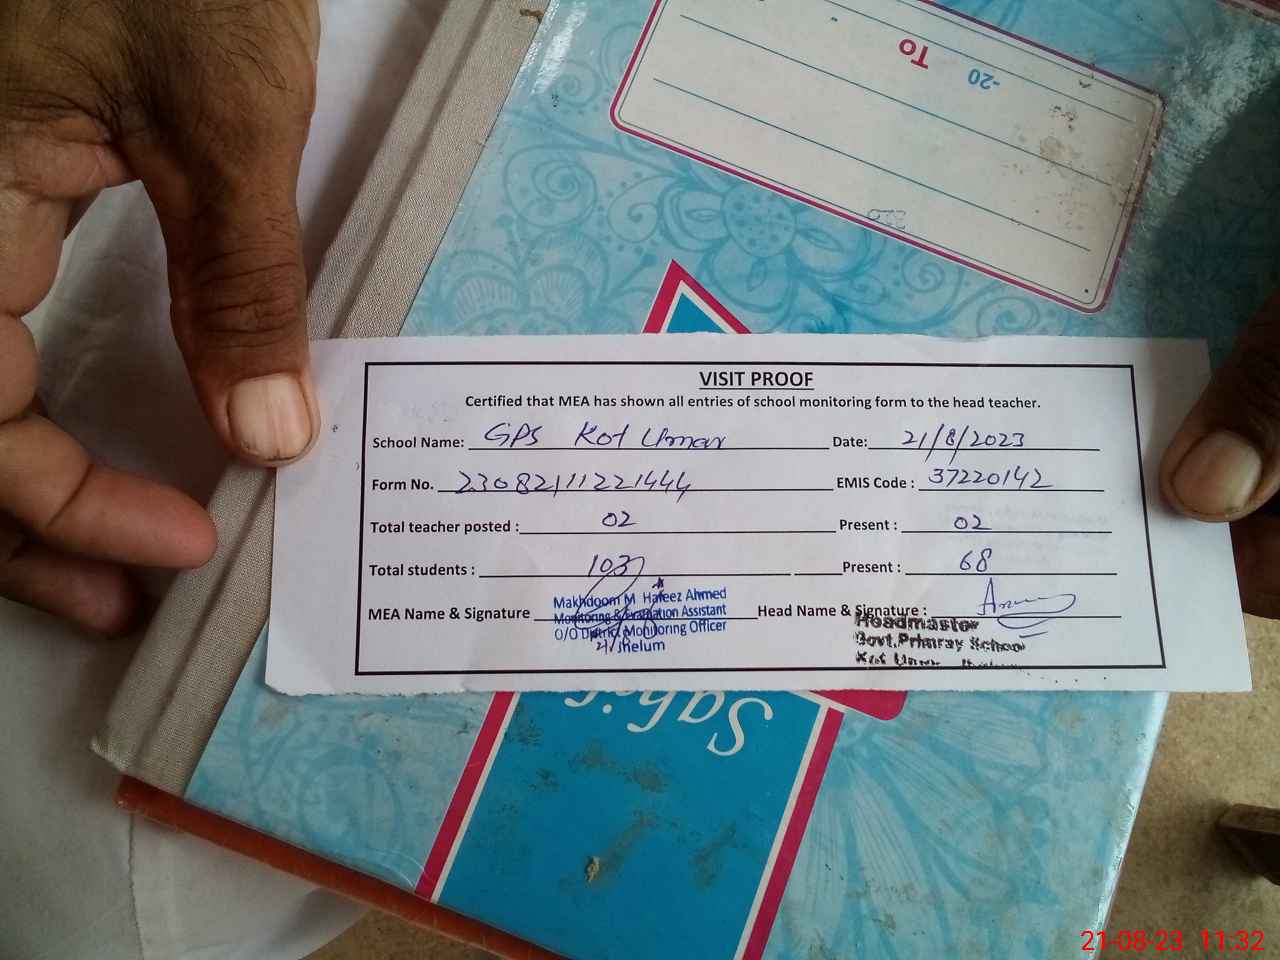 To
-20
VISIT PROOF
Certified that MEA has shown all entries of school monitoring form to the head teacher.
School Name: GPS Kot Umar Date: 21/8/2023
Form No. 23082111221444 EMIS Code : 37220142
Total teacher posted : 02 Present : 02
Total students : 103 Present : 68
MEA Name & Signature Head Name & Signature :
Makhdoom M Hafeez Ahmed
Monitoring & Evaluation Assistant
O/O District Monitoring Officer
Jhelum
Headmaster
Govt.Primray School
Kot Umar
21-08-23 11:32